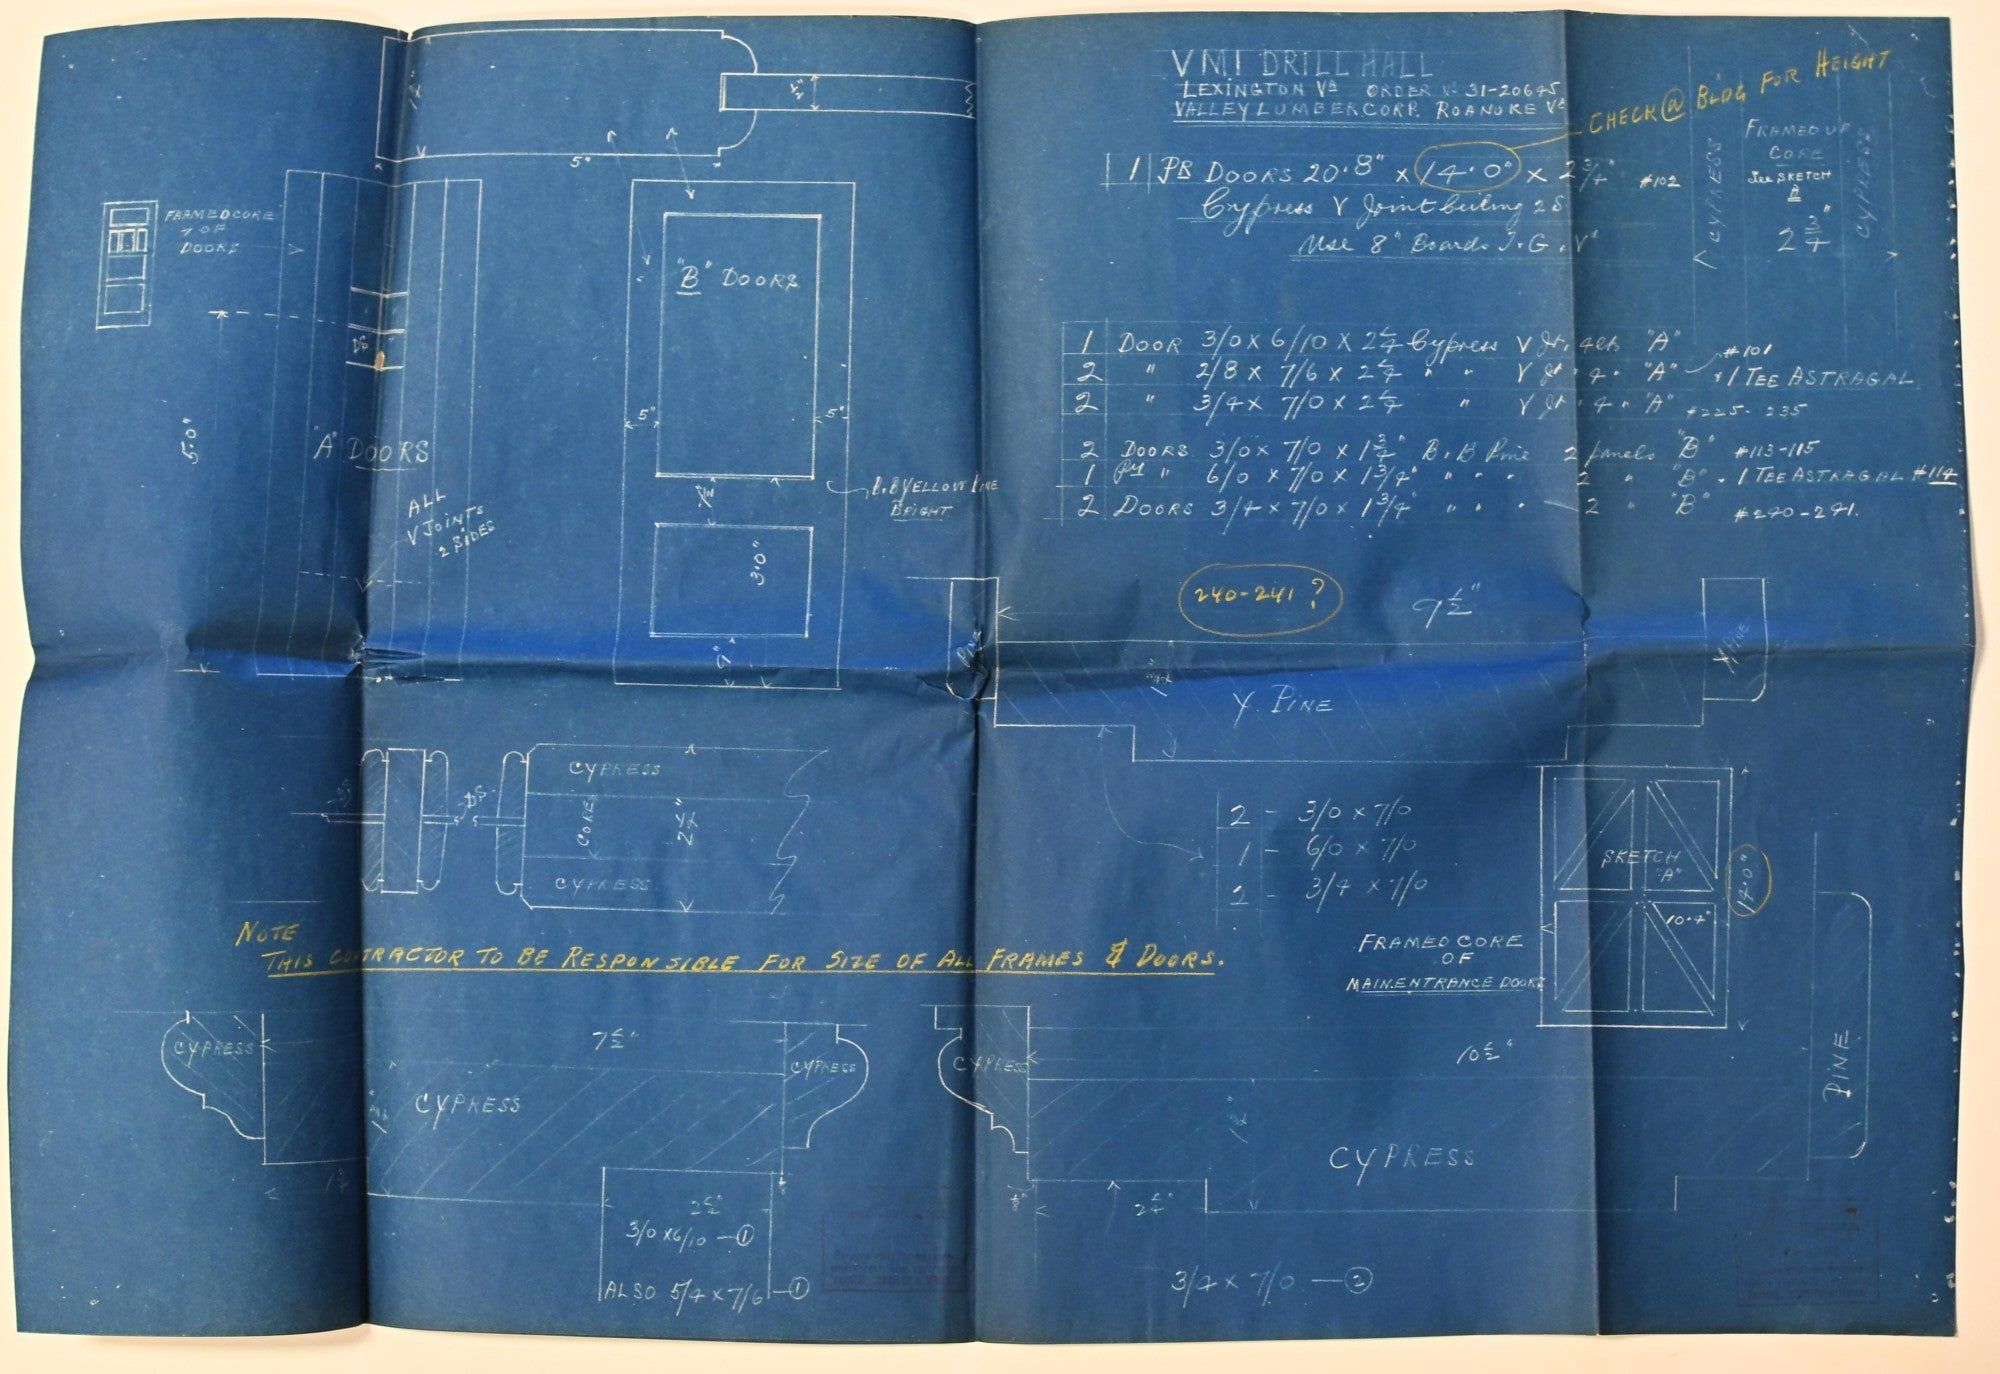 VMI DRILL HALL
LEXINGTON Va ORDER No 31-20645
VALLEY LUMBER CORP. ROANOKE Va
CHECK @ BLDG FOR HEIGHT
1 PR DOORS 20'8" x 14'0" x 2 3/4" #102
Cypress V Joint Ceiling 2 S
Use 8" Boards T. G. V
CYPRESS
FRAMED UP
CORE
See SKETCH
A
2 3/4"
CYPRESS
1 DOOR 3/0 x 6/10 x 2 1/4 Cypress V Jt. "A"
2 " 2/8 x 7/6 x 2 1/4 " " V Jt " 4 " "A" #101
1 TEE ASTRAGAL
2 " 3/4 x 7/0 x 2 1/4 " V Jt " 4 " "A" #225-235
2 DOORS 3/0 x 7/0 x 1 3/4" B.B Pine 2 panels "B" #113-115
1 PR " 6/0 x 7/0 x 1 3/4" " " " 2 " "B" . 1 TEE ASTRAGAL #114
2 DOORS 3/4 x 7/0 x 1 3/4" " " " 2 " "B" #240-241.
5"
FRAMED CORE
OF
DOORS
"A" DOORS
5'0"
ALL
V JOINTS
2 SIDES
"B" DOORS
5"
5"
B.B YELLOW PINE
BRIGHT
3'0"
9"
240-241?
9 1/2"
Y. PINE
Y PINE
CYPRESS
CORE
2 1/4"
CYPRESS
2 - 3/0 x 7/0
1 - 6/0 x 7/0
2 - 3/4 x 7/0
SKETCH
"A"
10'4"
14'0"
FRAMED CORE
OF
MAIN ENTRANCE DOORS
NOTE
THIS CONTRACTOR TO BE RESPONSIBLE FOR SIZE OF ALL FRAMES & DOORS.
CYPRESS
7 1/2"
CYPRESS
CYPRESS
2 1/4"
3/0 x 6/10 - 1
ALSO 5/4 x 7/6 - 1
CYPRESS
10 1/2"
CYPRESS
PINE
2 1/4"
3/4 x 7/0 - 2